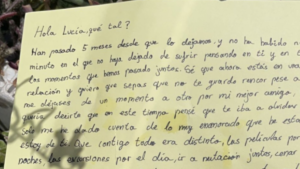 Hola Lucía, ¿qué tal?
Han pasado 5 meses desde que lo dejamos, y no ha habido n
minuto en el que no haya dejado de sufrir pensando en ti y en t
los momentos que hemos pasado juntos. Sé que ahora estás en una
relación y quiero que sepas que no te guardo rencor pese a
me dejases de un momento a otro por mi mejor amigo,
quería decirte que en este tiempo pensé que te iba a olvidar
solo me he dado cuenta de lo muy enamorado que
estoy de ti. Que contigo todo era distinto, las películas por
noches, las excursiones por el día, ir a natación juntos, cenar